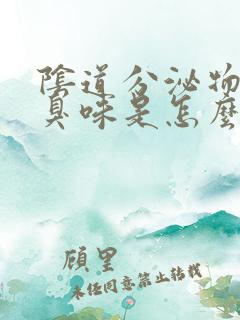 陰道分泌物
臭味是怎麼
頎里
未经同意禁止转载